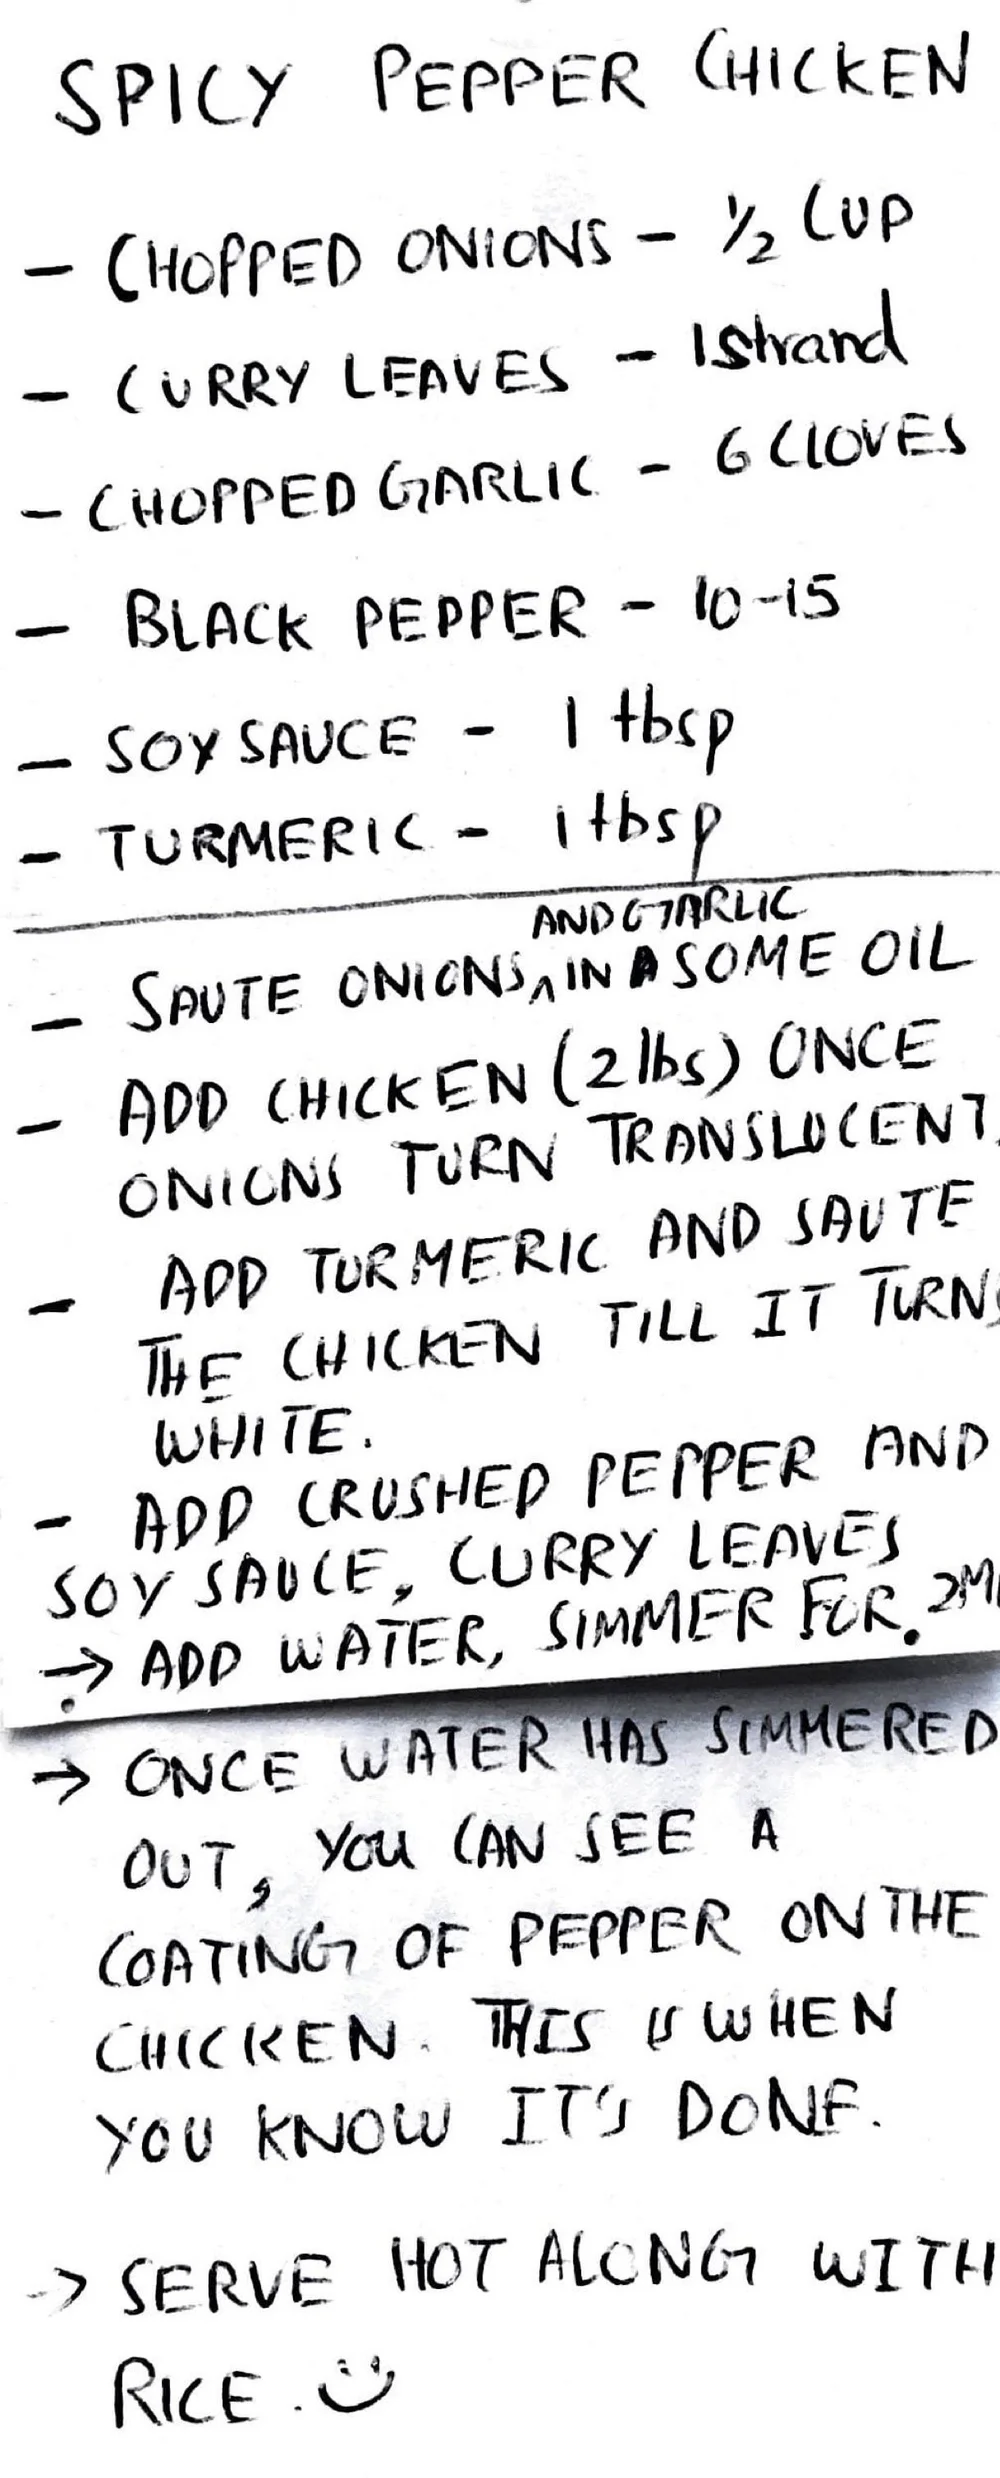 SPICY PEPPER CHICKEN
- CHOPPED ONIONS - 1/2 CUP
- CURRY LEAVES - 1 strand
- CHOPPED GARLIC - 6 CLOVES
- BLACK PEPPER - 10-15
- SOY SAUCE - 1 tbsp
- TURMERIC - 1 tbsp
AND GARLIC
- SAUTE ONIONS, ^ IN SOME OIL
- ADD CHICKEN (2 lbs) ONCE
ONIONS TURN TRANSLUCENT.
- ADD TURMERIC AND SAUTE
THE CHICKEN TILL IT TURNS
WHITE.
- ADD CRUSHED PEPPER AND
SOY SAUCE, CURRY LEAVES
→ ADD WATER, SIMMER FOR. 2M
→ ONCE WATER HAS SIMMERED
OUT, YOU CAN SEE A
COATING OF PEPPER ON THE
CHICKEN. THIS IS WHEN
YOU KNOW IT'S DONE.
→ SERVE HOT ALONG WITH
RICE. :)